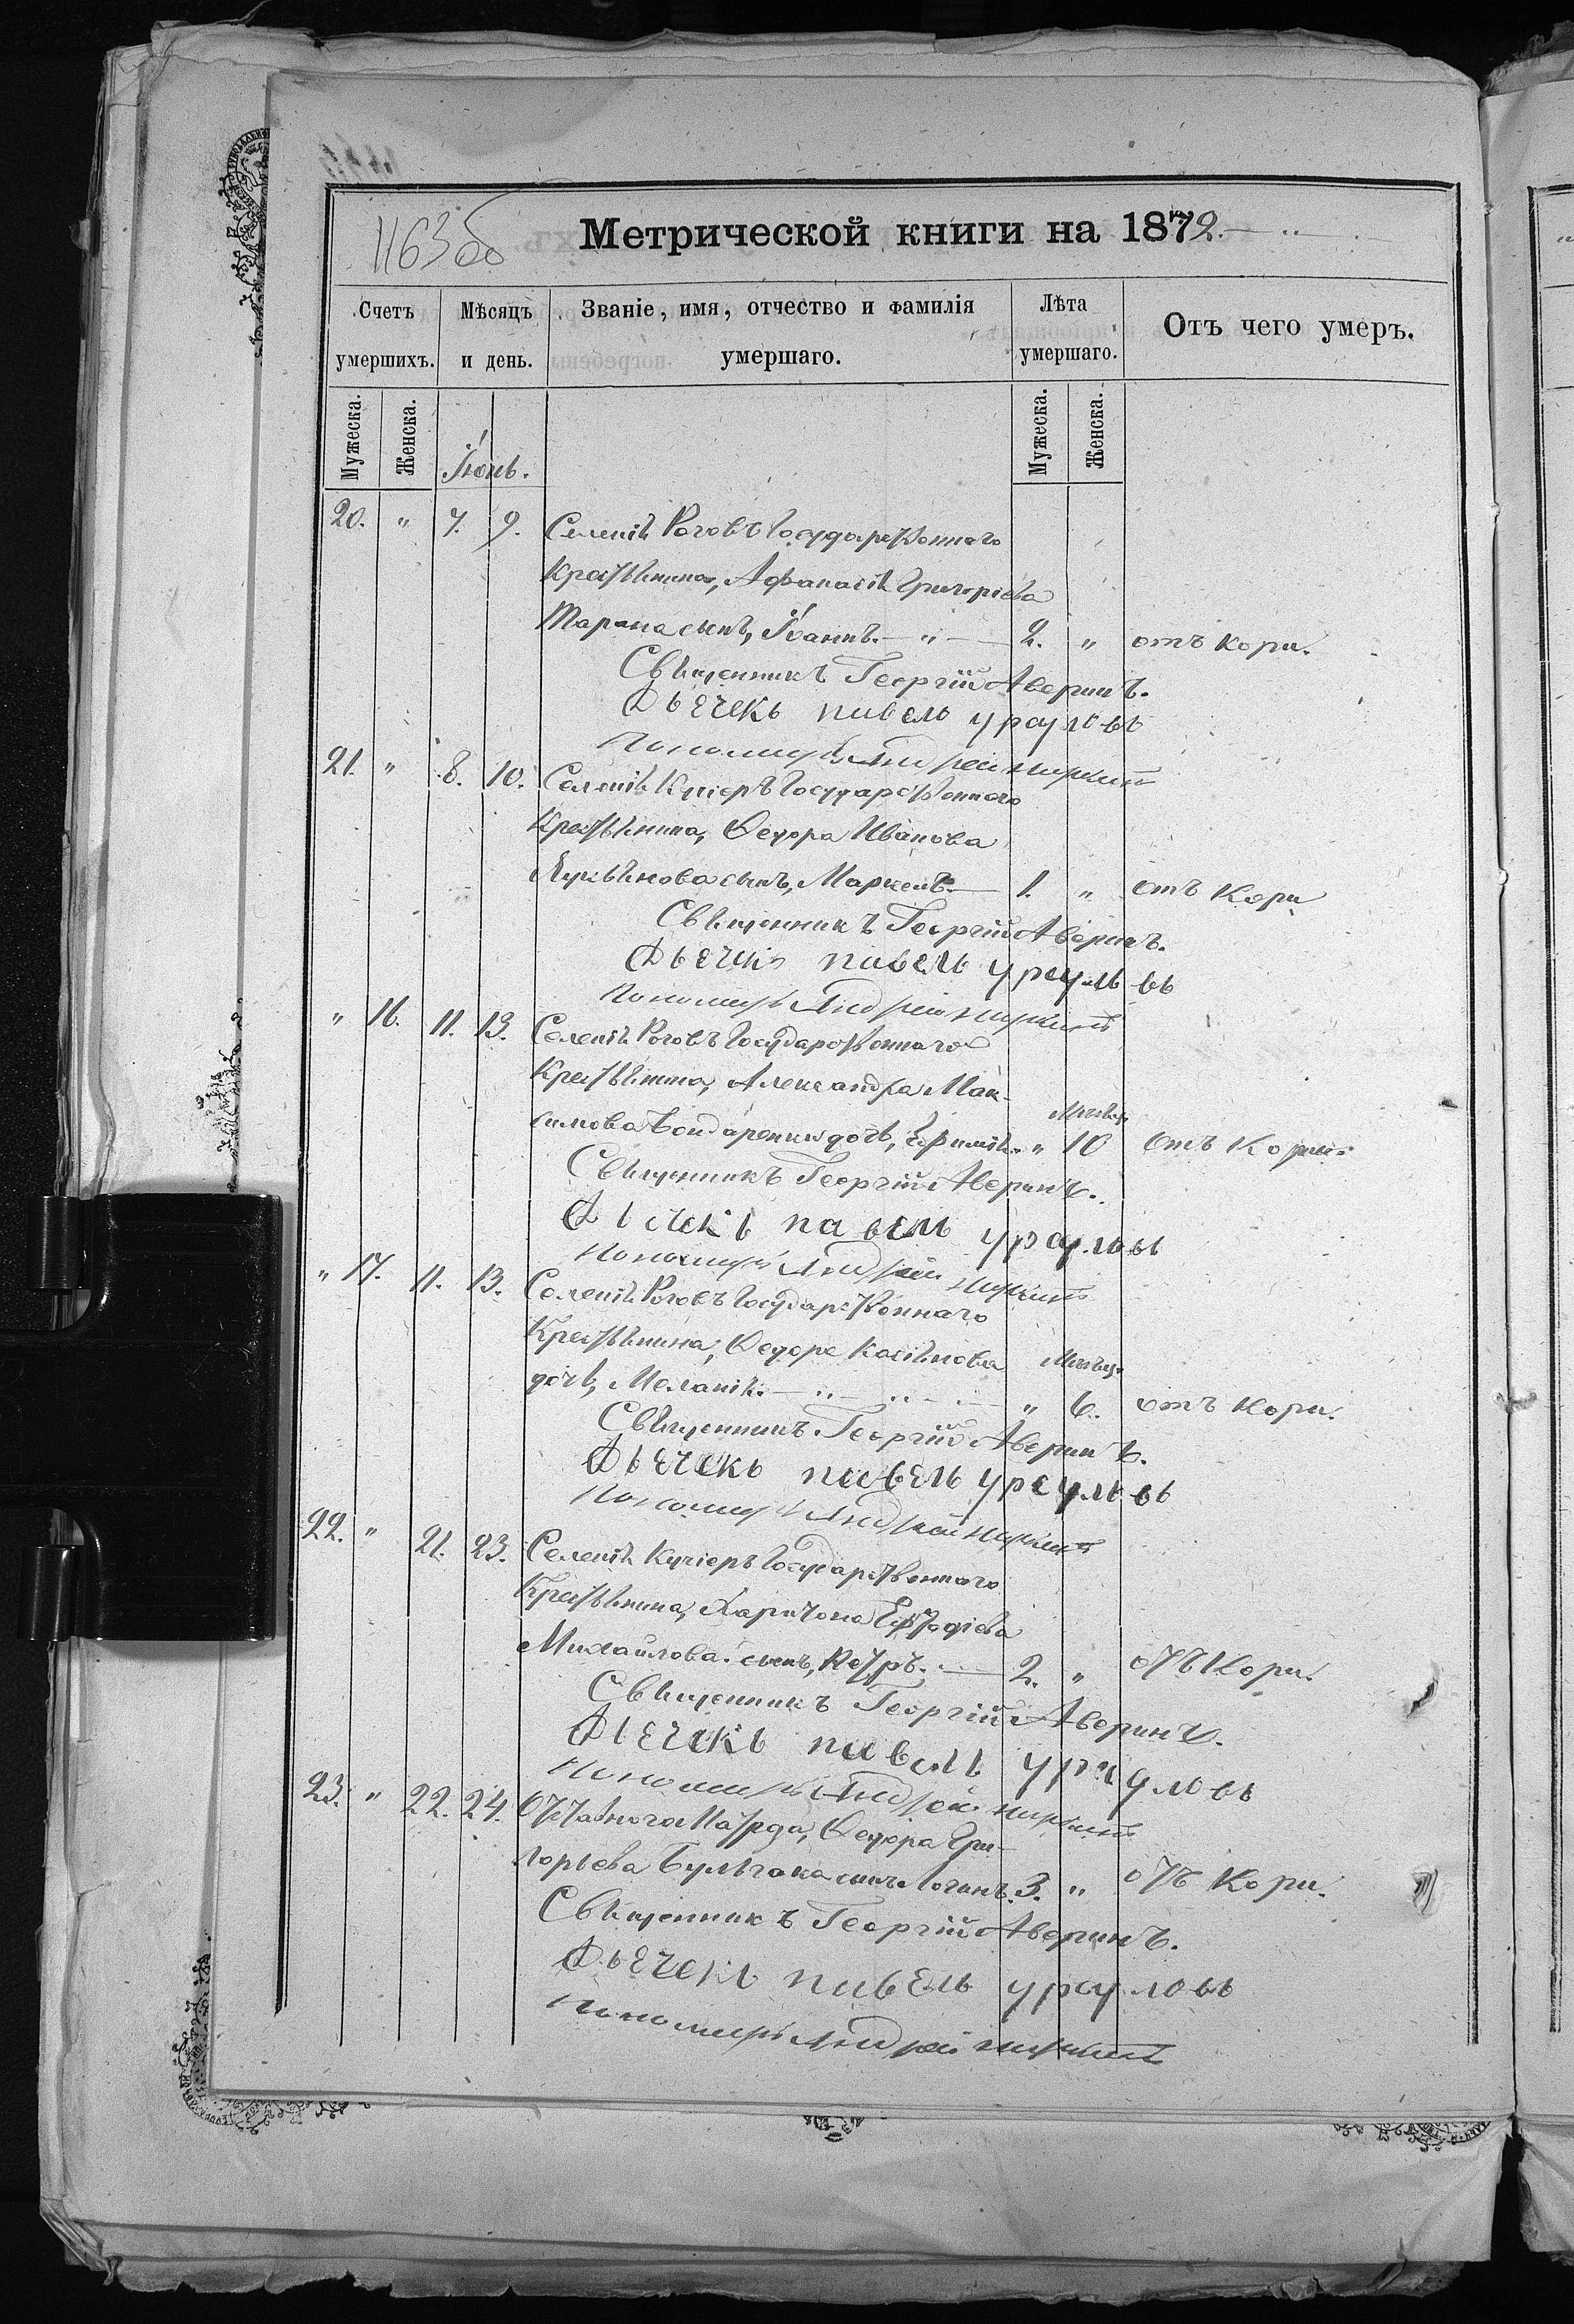 1163 об
Метрической книги на 1872.
Счетъ умершихъ.
Мѣсяцъ и день.
Званіе, имя, отчество и фамилія умершаго.
Лѣта умершаго.
Отъ чего умеръ.
Мужеска.
Женска.
Іюнь.
Мужеска.
Женска.
20. " 7. 9. Селенія Роговъ Государственнаго
Крестьянина, Афанасія Григоріева
Тарана сынъ, Іоаннъ. — " — 2. " отъ кори.
Священникъ Георгій Аверинъ.
Дьячекъ павелъ урсуловъ
Пономарь Андрей
21. " 8. 10. Селенія Кугієръ Государственнаго
Крестьянина, Ѳедора Иванова
сынъ, Маркелъ. — 1. " отъ Кори
Священникъ Георгій Аверинъ.
Дьячекъ павелъ урсуловъ
Пономарь Андрей
" 16. 11. 13. Селенія Роговъ Государственнаго
Крестьянина, Александра Мак-
симова Бондаренки дочь, Евфимія. " Мѣсяц. 10 Отъ Кори
Священникъ Георгій Аверинъ.
Дьячекъ павелъ урсуловъ
Пономарь Андрей
" 17. 11. 13. Селенія Роговъ Государственнаго
Крестьянина, Ѳедора Касіянова Мѣсяц.
дочь, Меланія. — " — " — " 6. отъ кори.
Священникъ Георгій Аверинъ.
Дьячекъ павелъ урсуловъ
Пономарь Андрей
22. " 21. 23. Селенія Кугієръ Государственнаго
Крестьянина, Харитона
Михайлова сынъ, Петръ. — 2. " отъ Кори.
Священникъ Георгій Аверинъ.
Дьячекъ павелъ урсуловъ
Пономарь Андрей
23. " 22. 24. Отставнаго Ѳедора Гри-
горьева Бульгака сынъ Логинъ. 3. " отъ Кори.
Священникъ Георгій Аверинъ.
Дьячекъ павелъ урсуловъ
Пономарь Андрей